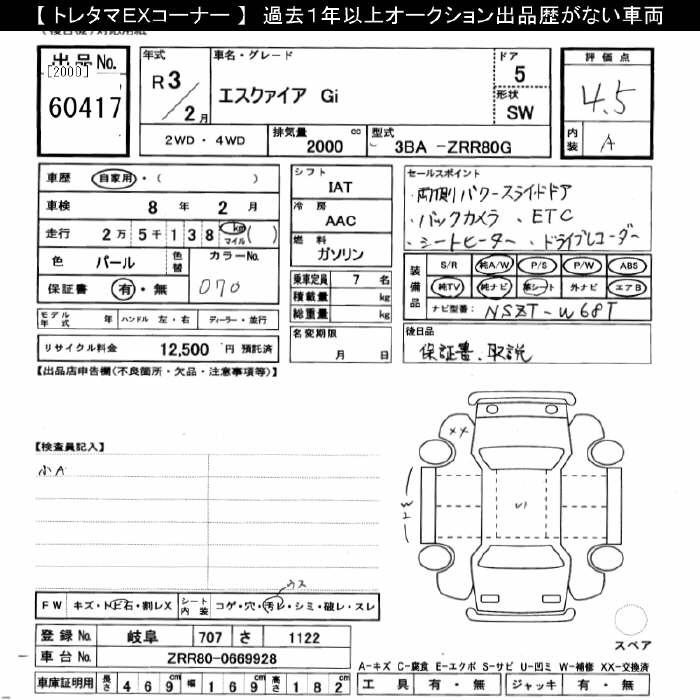 【 トレタマEXコーナー 】 過去1年以上オークション出品歴がない車両
出品 No.
[2000]
60417
年式
R 3 / 2 月
車名・グレード
エスクァイア Gi
ドア
5
形状
SW
評価点
4.5
内装
A
2WD ・ 4WD
排気量
2000 cc
型式
3BA -ZRR80G
車歴 自家用 ・ ( )
車検 8 年 2 月
走行 2 万 5 千 1 3 8 km マイル ( )
色 パール 色替 カラーNo.
保証書 有 ・ 無 070
モデル年式 年 ハンドル 左 ・ 右 ディーラー ・ 並行
リサイクル料金 12,500 円 預託済
シフト
IAT
冷房
AAC
燃料
ガソリン
乗車定員 7 名
積載量 kg
総重量 kg
名変期限
月 日
セールスポイント
・両側パワースライドドア
・バックカメラ ・ETC
・シートヒーター ・ドライブレコーダー
装備品
S/R 純A/W P/S P/W ABS
純TV 純ナビ 革シート 外ナビ エアB
ナビ型番: NSZT-W68T
後日品
保証書、取説
【出品店申告欄(不良箇所・欠品・注意事項等)】
【検査員記入】
小A
XX
W2
U1
ウス
FW キズ・トビ石・割レX シート内装 コゲ・穴・汚レ・シミ・破レ・スレ
登録 No. 岐阜 707 さ 1122
車台 No. ZRR80-0669928
車庫証明用 長さ 4 6 9 cm 幅 1 6 9 cm 高さ 1 8 2 cm
スペア
A-キズ C-腐食 E-エクボ S-サビ U-凹ミ W-補修 XX-交換済
工具 有 ・ 無 ジャッキ 有 ・ 無